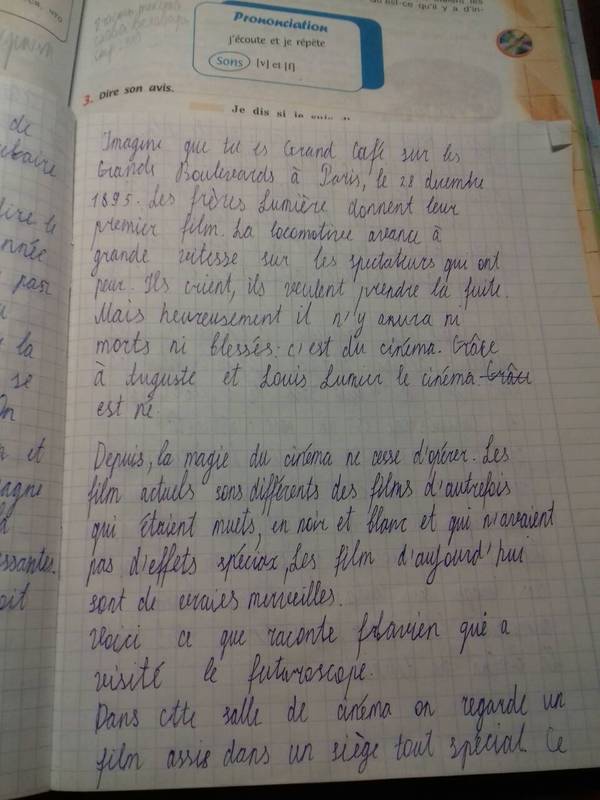 Prononciation
j'écoute et je répète
sons [v] et [f]
3. Dire son avis.
Je dis si je suis
Imagine que tu es Grand Café sur les
Grands Boulevards à Paris, le 28 decembre
1895. Les frères Lumière donnent leur
premier film. La locomotive avance à
grande vitesse sur les spectateurs qui ont
peur. Ils crient, ils veulent prendre la fuite.
Mais heureusement il n'y aura ni
morts ni blessés: c'est du cinéma. Grâce
à Auguste et Louis Lumier le cinéma Grâce
est né
Depuis, la magie du cinéma ne cesse d'opérer. Les
film actuels sons différents des films d'autrefois
qui étaient muets, en noir et blanc et qui n'avaient
pas d'effets spéciax, Les film d'aujourd'hui
sont de vraies merveilles.
Voici ce que raconte Flavien qui a
visité le futuroscope.
Dans cette salle de cinéma on regarde un
film assis dans un siège tout spécial. Ce
de
dire le
nnée
pas
la
se
On
et
agne
essantes.
oit